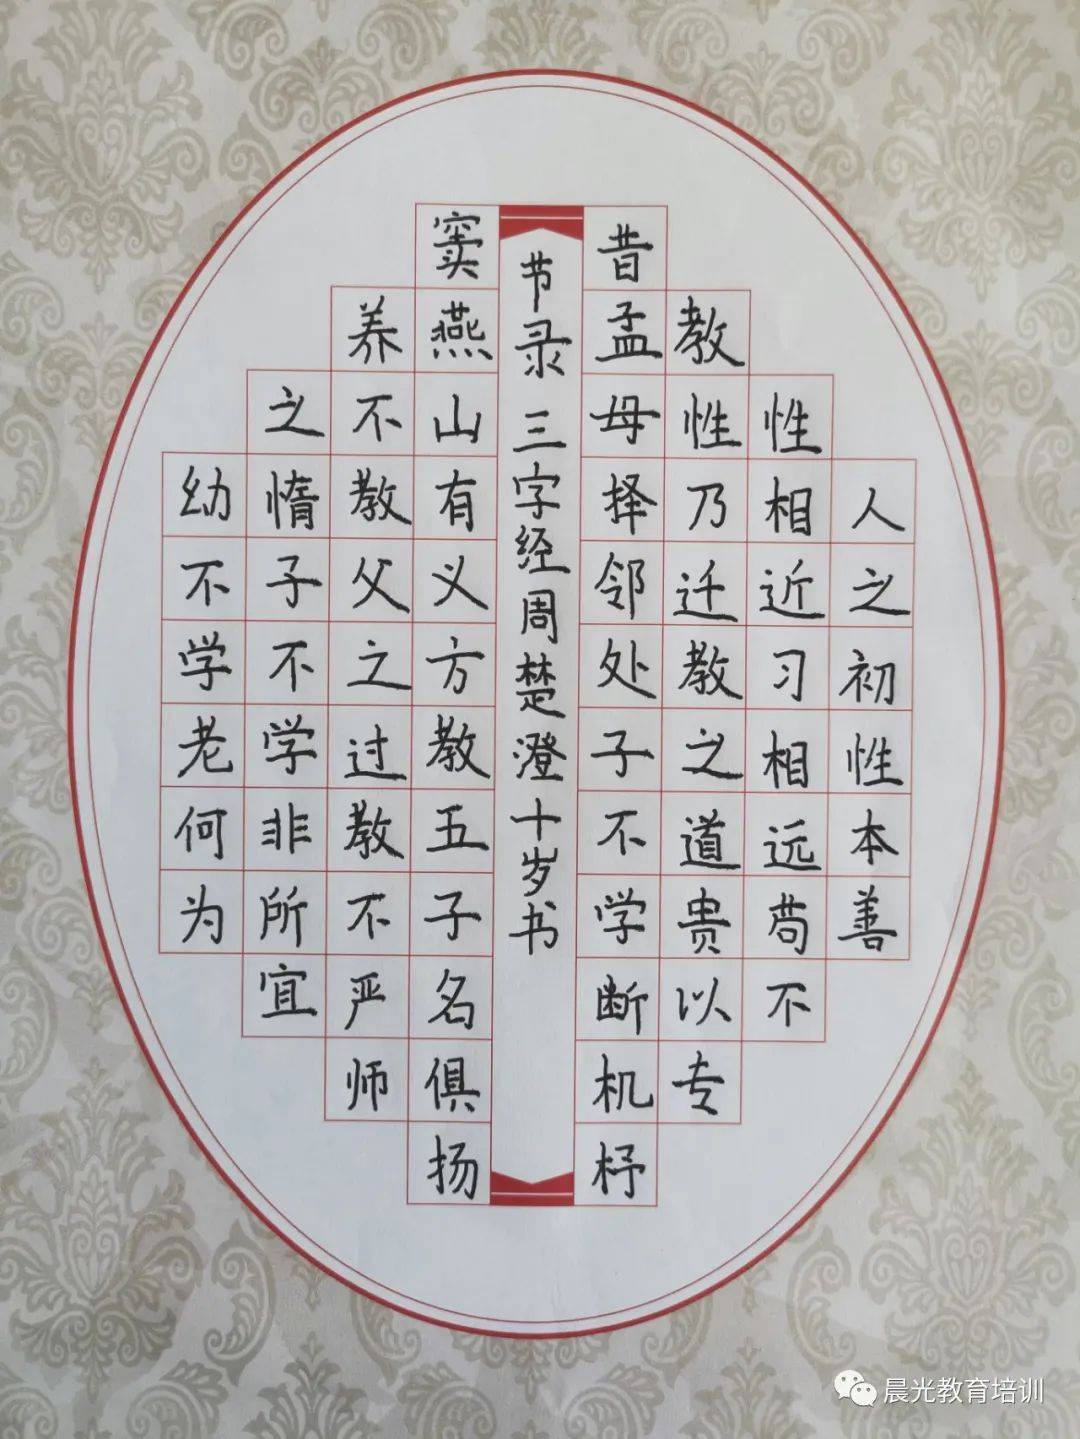 人之初性本善
性相近习相远苟不
教性乃迁教之道贵以专
昔孟母择邻处子不学断机杼
节录三字经周楚澄十岁书
窦燕山有义方教五子名俱扬
养不教父之过教不严师
之惰子不学非所宜
幼不学老何为
晨光教育培训